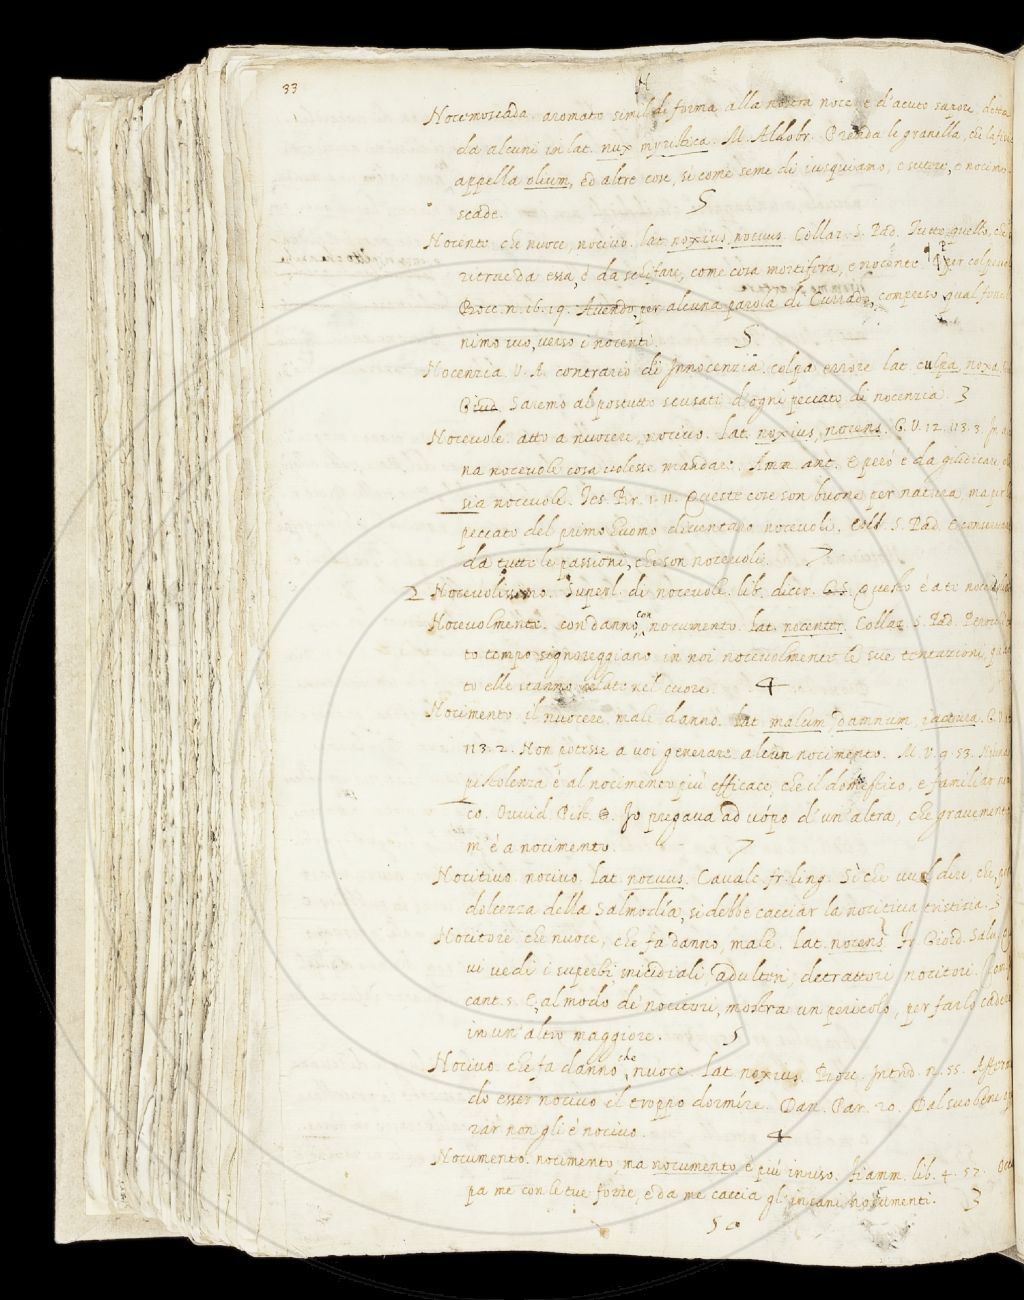 33
N
Nocemoscada. aromato simil di forma alla nostra noce, e d'acuto sapore, detta
da alcuni in lat. nux myristica. M. Aldobr. Prenda le granella, che la fisica
appella olium, ed altre cose, si come seme di iusquiamo, e nocimo
scade. 5
Nocente che nuoce, nocivo. lat. noxius, nocuus. Collaz. S. Pad. Tutto quello, che
ritrae da essa, è da schifare, come cosa mortifera, e nocente. per colpevole
Bocc. n. 16. 19. Avendo per alcuna parola di Currado, compreso qual fosse
nimo suo, verso i nocenti. 5
Nocenzia. V. A. contrario di Innocenzia. colpa errore lat. culpa, noxa,
Giud. Saremo al postutto scusati d'ogni peccato di nocenzia. 3
Nocevole. atto a nuocere, nocivo. Lat. noxius, nocens. G. V. 12. 113. 3.
na nocevole cosa volesse mandare. Amm. ant. E però è da giudicare
sia nocevole. Tes. Br. 1. 11. Queste cose son buone per natura, ma per lo
peccato del primo huomo diventaro nocevoli. Coll. S. Pad. E conservar
da tutte le passioni, che son nocevoli. 7
2 Nocevolissimo. Superl. di nocevole. lib. dicer. Questo è a te nocevolis
Nocevolmente. con danno, con nocumento. lat. nocenter. Collaz. S. Pad. Perocche
to tempo signoreggiano in noi nocevolmente le sue tentazioni, quan
to elle stanno celate nel cuore. 4
Nocimento. il nuocere male danno. lat. malum, damnum, iactura. G. V. 12
113. 2. Non potesse a voi generare alcun nocimento. M. V. 9. 53. Niuna
pistolenza è al nocimento più efficace, che il domestico, e familiar nemi
co. Ovvid. Pist. Io pregava ad uopo d'un'altra, che gravemente
m'è a nocimento. 7
Nocitivo. nocivo. lat. nocuus. Cavalc. fr. ling. Sì che vuol dire, che,
dolcezza della Salmodìa, si debbe cacciar la nocitiva tristizia. 5
Nocitore che nuoce, che fa danno, male. lat. nocens. Fr. Giord. Salv.
vi vedi i superbi, micidiali, adulteri, detrattori, nocitori.
cant. 5. E, al modo de' nocitori, mostra un pericolo, per farlo cadere
in un'altro maggiore. 5
Nocivo. che fa danno, che nuoce. lat. noxius. Bocc. Introd. n. 55. Afferman
do esser nocivo il troppo dormire. Dan. Par. 20. Dal suo bene
rar non gli è nocivo. 4
Nocumento. nocimento, ma nocumento è più in uso. Fiamm. lib. 4. 52. Occu
pa me con le tue forze, e da me caccia gl'insani nocumenti. 3
50